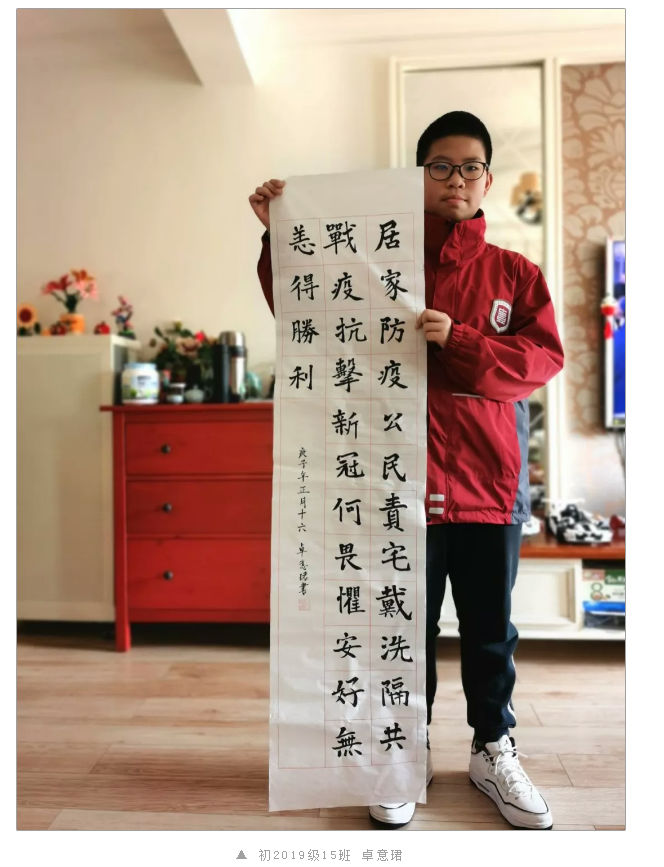 居家防疫公民責宅戴洗隔共
戰疫抗擊新冠何畏懼安好無
恙得勝利
庚子年正月十六 卓意珺書
▲ 初2019级15班 卓意珺